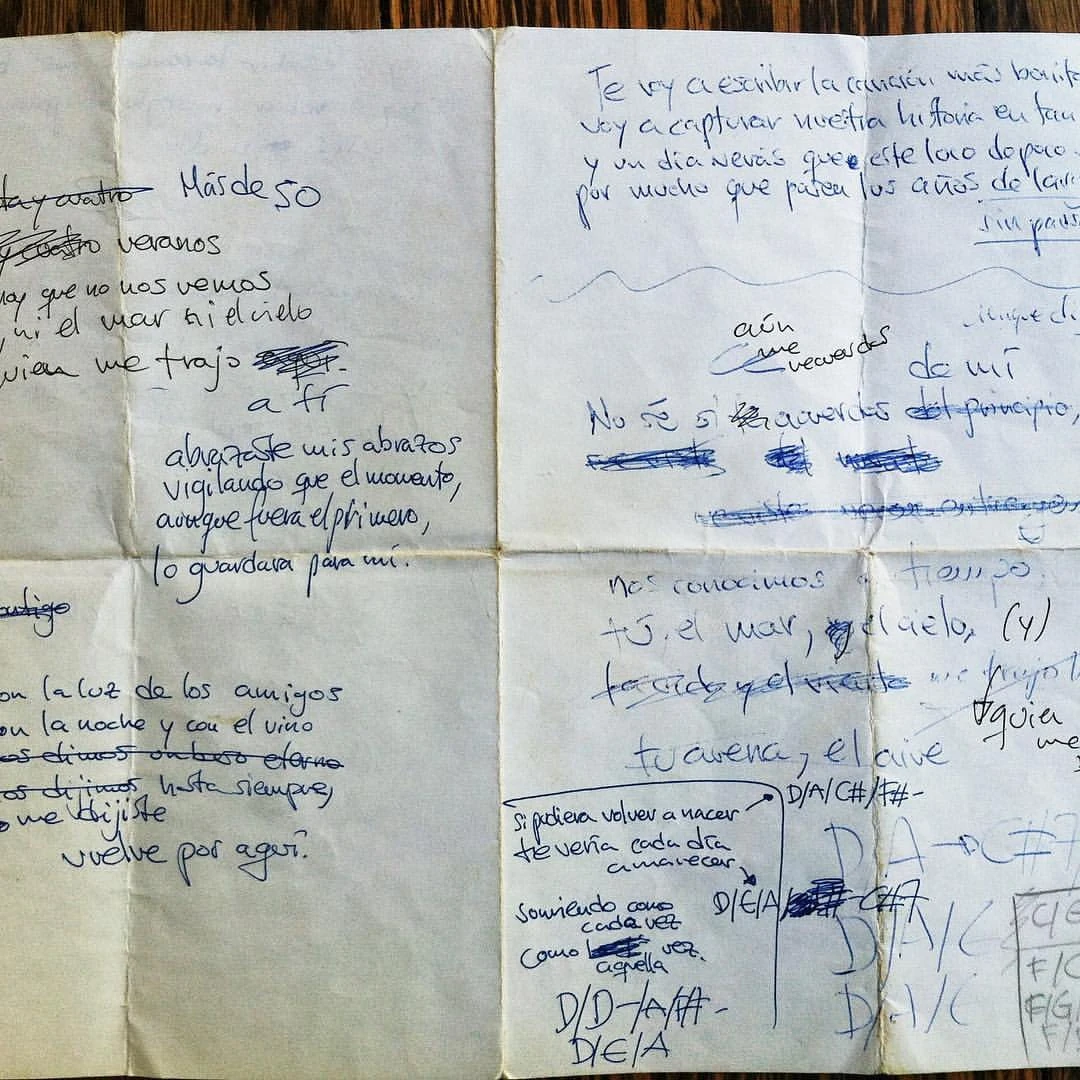 tay cuatro Más de 50
y cuatro veranos
hoy que no nos vemos
, ni el mar ni el cielo
quien me trajo
a tí
abrazaste mis abrazos
vigilando que el momento,
aunque fuera el primero,
lo guardara para mí.
ontigo
on la luz de los amigos
on la noche y con el vino
os dimos un beso eterno
os dijimos hasta siempre,
o me dijiste
vuelve por aquí.
Te voy a escribir la canción más bonita
voy a capturar nuestra historia en tan
y un día verás que este loco de poco
por mucho que pasen los años de larg
sin paus
aún
me
recuerdas
de mí
No sé si acuerdas del principio,
nos conocimos tiempo
tú, el mar, y el cielo, (y)
la vida y el viento me trajo
quien
me
tu arena, el aire
si pudiera volver a nacer
te vería cada día
amanecer
sonriendo como
cada vez
como vez.
aquella
D/D-/A/F#-
D/E/A
D/A/C#/F#-
D A→C#7
D/E/A/ C#7
D/A/C
D/A/C
C/E
F/C
F/G/
F/